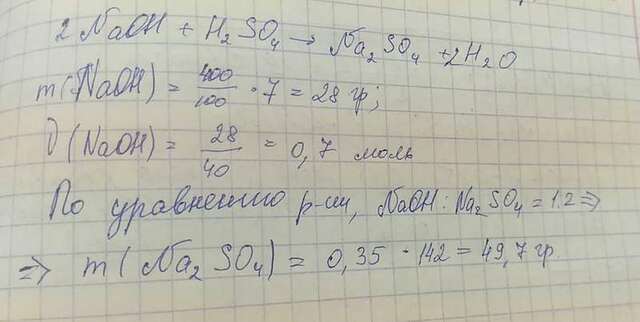 2 NaOH + H₂SO₄ → Na₂SO₄ + 2H₂O
m(NaOH) = 400/100 · 7 = 28 гр;
υ(NaOH) = 28/40 = 0,7 моль
По уравнению р-ии, NaOH : Na₂SO₄ = 1:2 =>
=> m(Na₂SO₄) = 0,35 · 142 = 49,7 гр